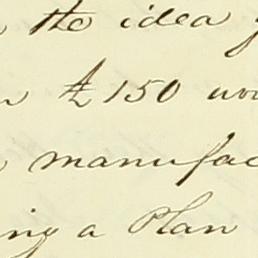 the idea
£150
manufac
ing a Plan